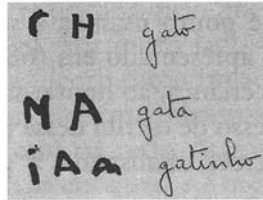 C H gato
M A gata
i A m gatinho